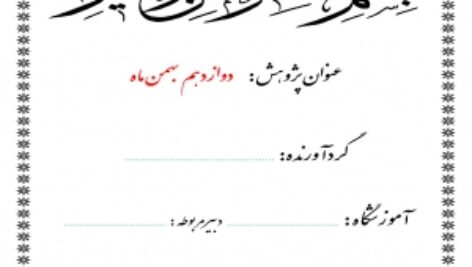 عنوان پژوهش: دوازدهم بهمن ماه
گردآورنده: ........................................
آموزشگاه: .............................. دبیر مربوطه: ..............................